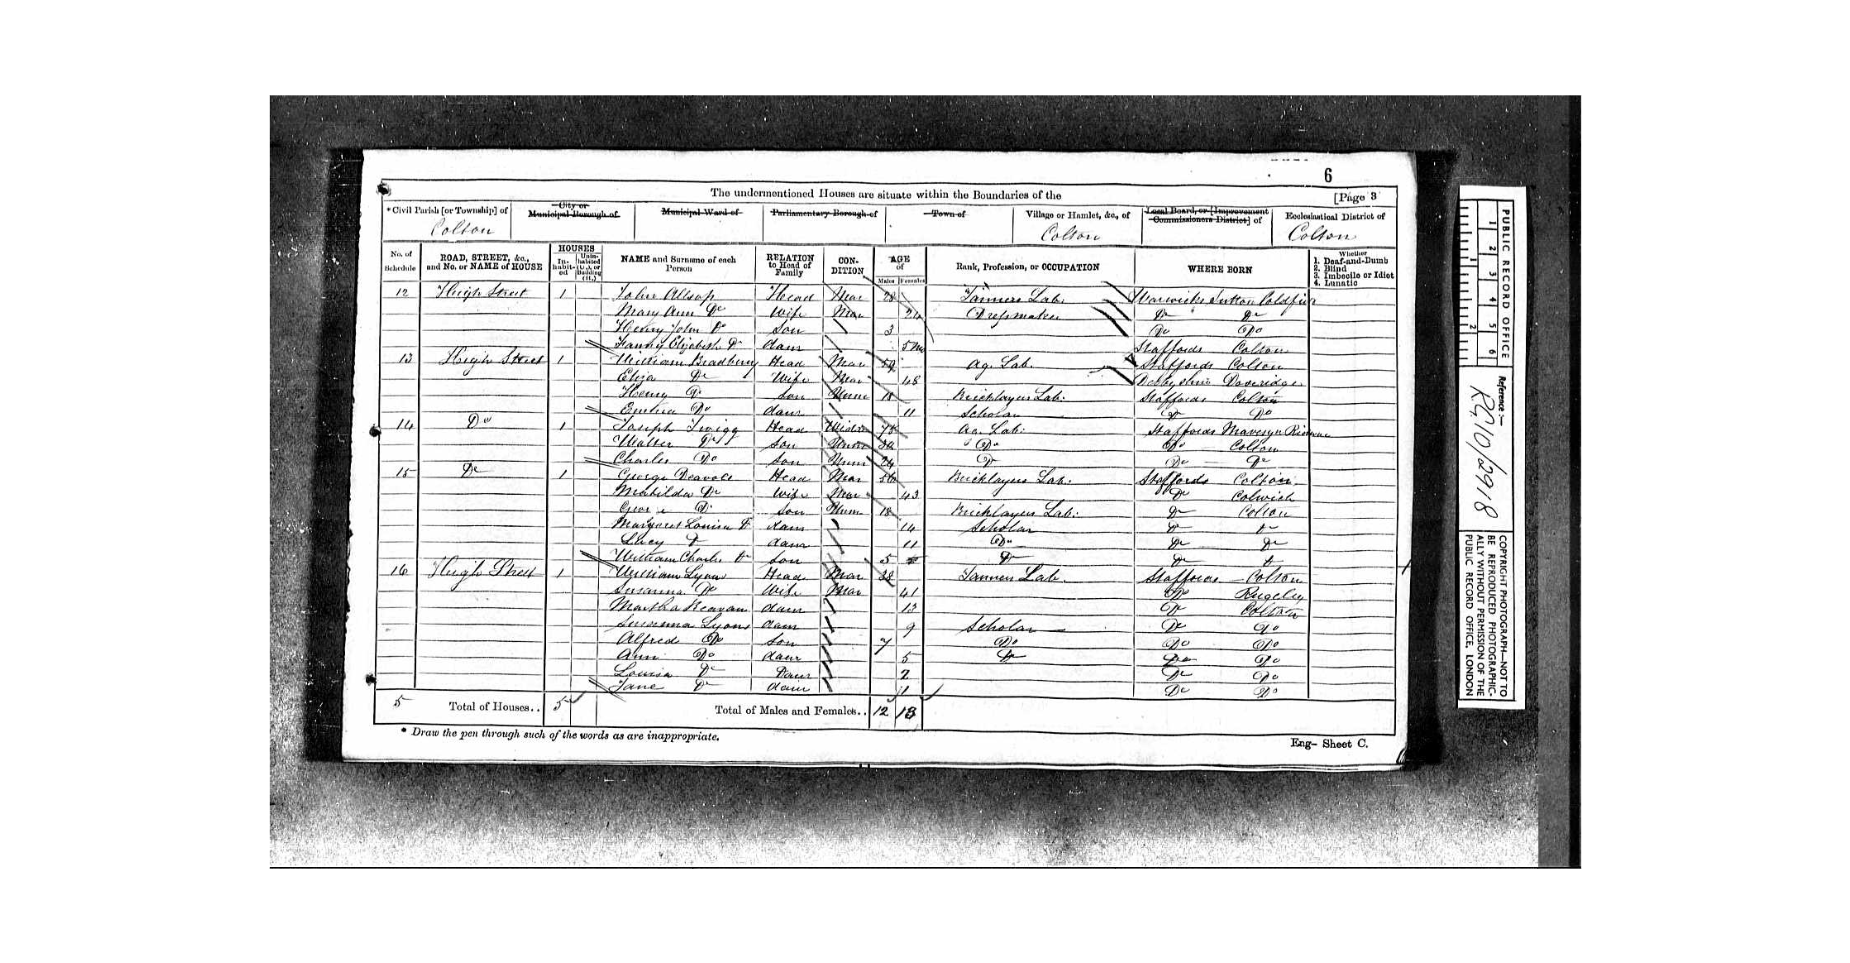 6
The undermentioned Houses are situate within the Boundaries of the [Page 3
*Civil Parish [or Township] of City or Municipal Borough of Municipal Ward of Parliamentary Borough of Town of Village or Hamlet, &c., of Local Board, or [Improvement Commissioners District] of Ecclesiastical District of
Colton Colton Colton
No. of Schedule ROAD, STREET, &c., and No. or NAME of HOUSE HOUSES Inhabited Uninhabited (U.), or Building (B.) NAME and Surname of each Person RELATION to Head of Family CONDITION AGE of Males Females Rank, Profession, or OCCUPATION WHERE BORN Whether 1. Deaf-and-Dumb 2. Blind 3. Imbecile or Idiot 4. Lunatic
12 High Street 1 John Allsop Head Mar Tanners Lab. Warwicks Sutton
Mary Ann Do Wife Mar Dressmaker Do Do
Henry John Do Son 3 Do Do
Fanny Elizabeth Do daur 5 Mo Staffords Colton
13 High Street 1 William Bradbury Head Mar Ag. Lab. Staffords Colton
Eliza Do Wife Mar 48 Derbyshire Doveridge
Henry Do Son Unm 18 Bricklayers Lab: Staffords Colton
Emma Do daur 11 Scholar Do Do
14 Do 1 Joseph Twigg Head Ag. Lab: Staffords Mavesyn
Walter Do Son Unm Do Do Colton
Charles Do Son Unm Do Do Do
15 Do 1 George Head Mar Bricklayers Lab. Staffords Colton
Matilda Do Wife Mar 43 Do Colwich
Do Son Unm 18 Bricklayers Lab: Do Colton
Margaret Louisa Do daur 14 Scholar Do Do
Lucy Do daur 11 Do Do Do
William Charles Do Son 5 Do Do Do
16 High Street 1 William Lyons Head Mar 38 Tanners Lab. Staffords Colton
Susanna Do Wife Mar 41 Do Rugeley
Martha daur 13 Do Colton
Susanna Lyons daur 9 Scholar Do Do
Alfred Do Son 7 Do Do Do
Ann Do daur 5 Do Do Do
Louisa Do Daur 2 Do Do
Jane Do daur 1 Do Do
5 Total of Houses.. 5 Total of Males and Females.. 12 13
* Draw the pen through such of the words as are inappropriate.
Eng- Sheet C.
PUBLIC RECORD OFFICE
1 2 3 4 5 6
1 2
Reference:-
RG10/2918
COPYRIGHT PHOTOGRAPH-NOT TO
BE REPRODUCED PHOTOGRAPHIC-
ALLY WITHOUT PERMISSION OF THE
PUBLIC RECORD OFFICE, LONDON